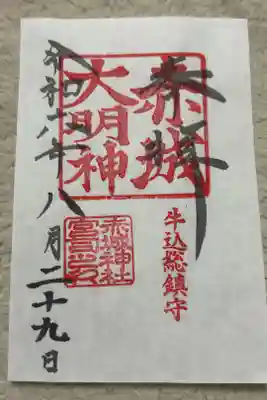 奉拝
赤城
大明神
牛込総鎮守
赤城神社
宮司之印
令和六年
八月二十九日